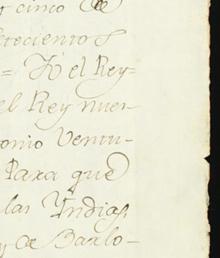 y cinco de
etecientos
= Yo el Rey=
el Rey nues-
onio Ventu-
Para que
las Yndias
y de Barlo-